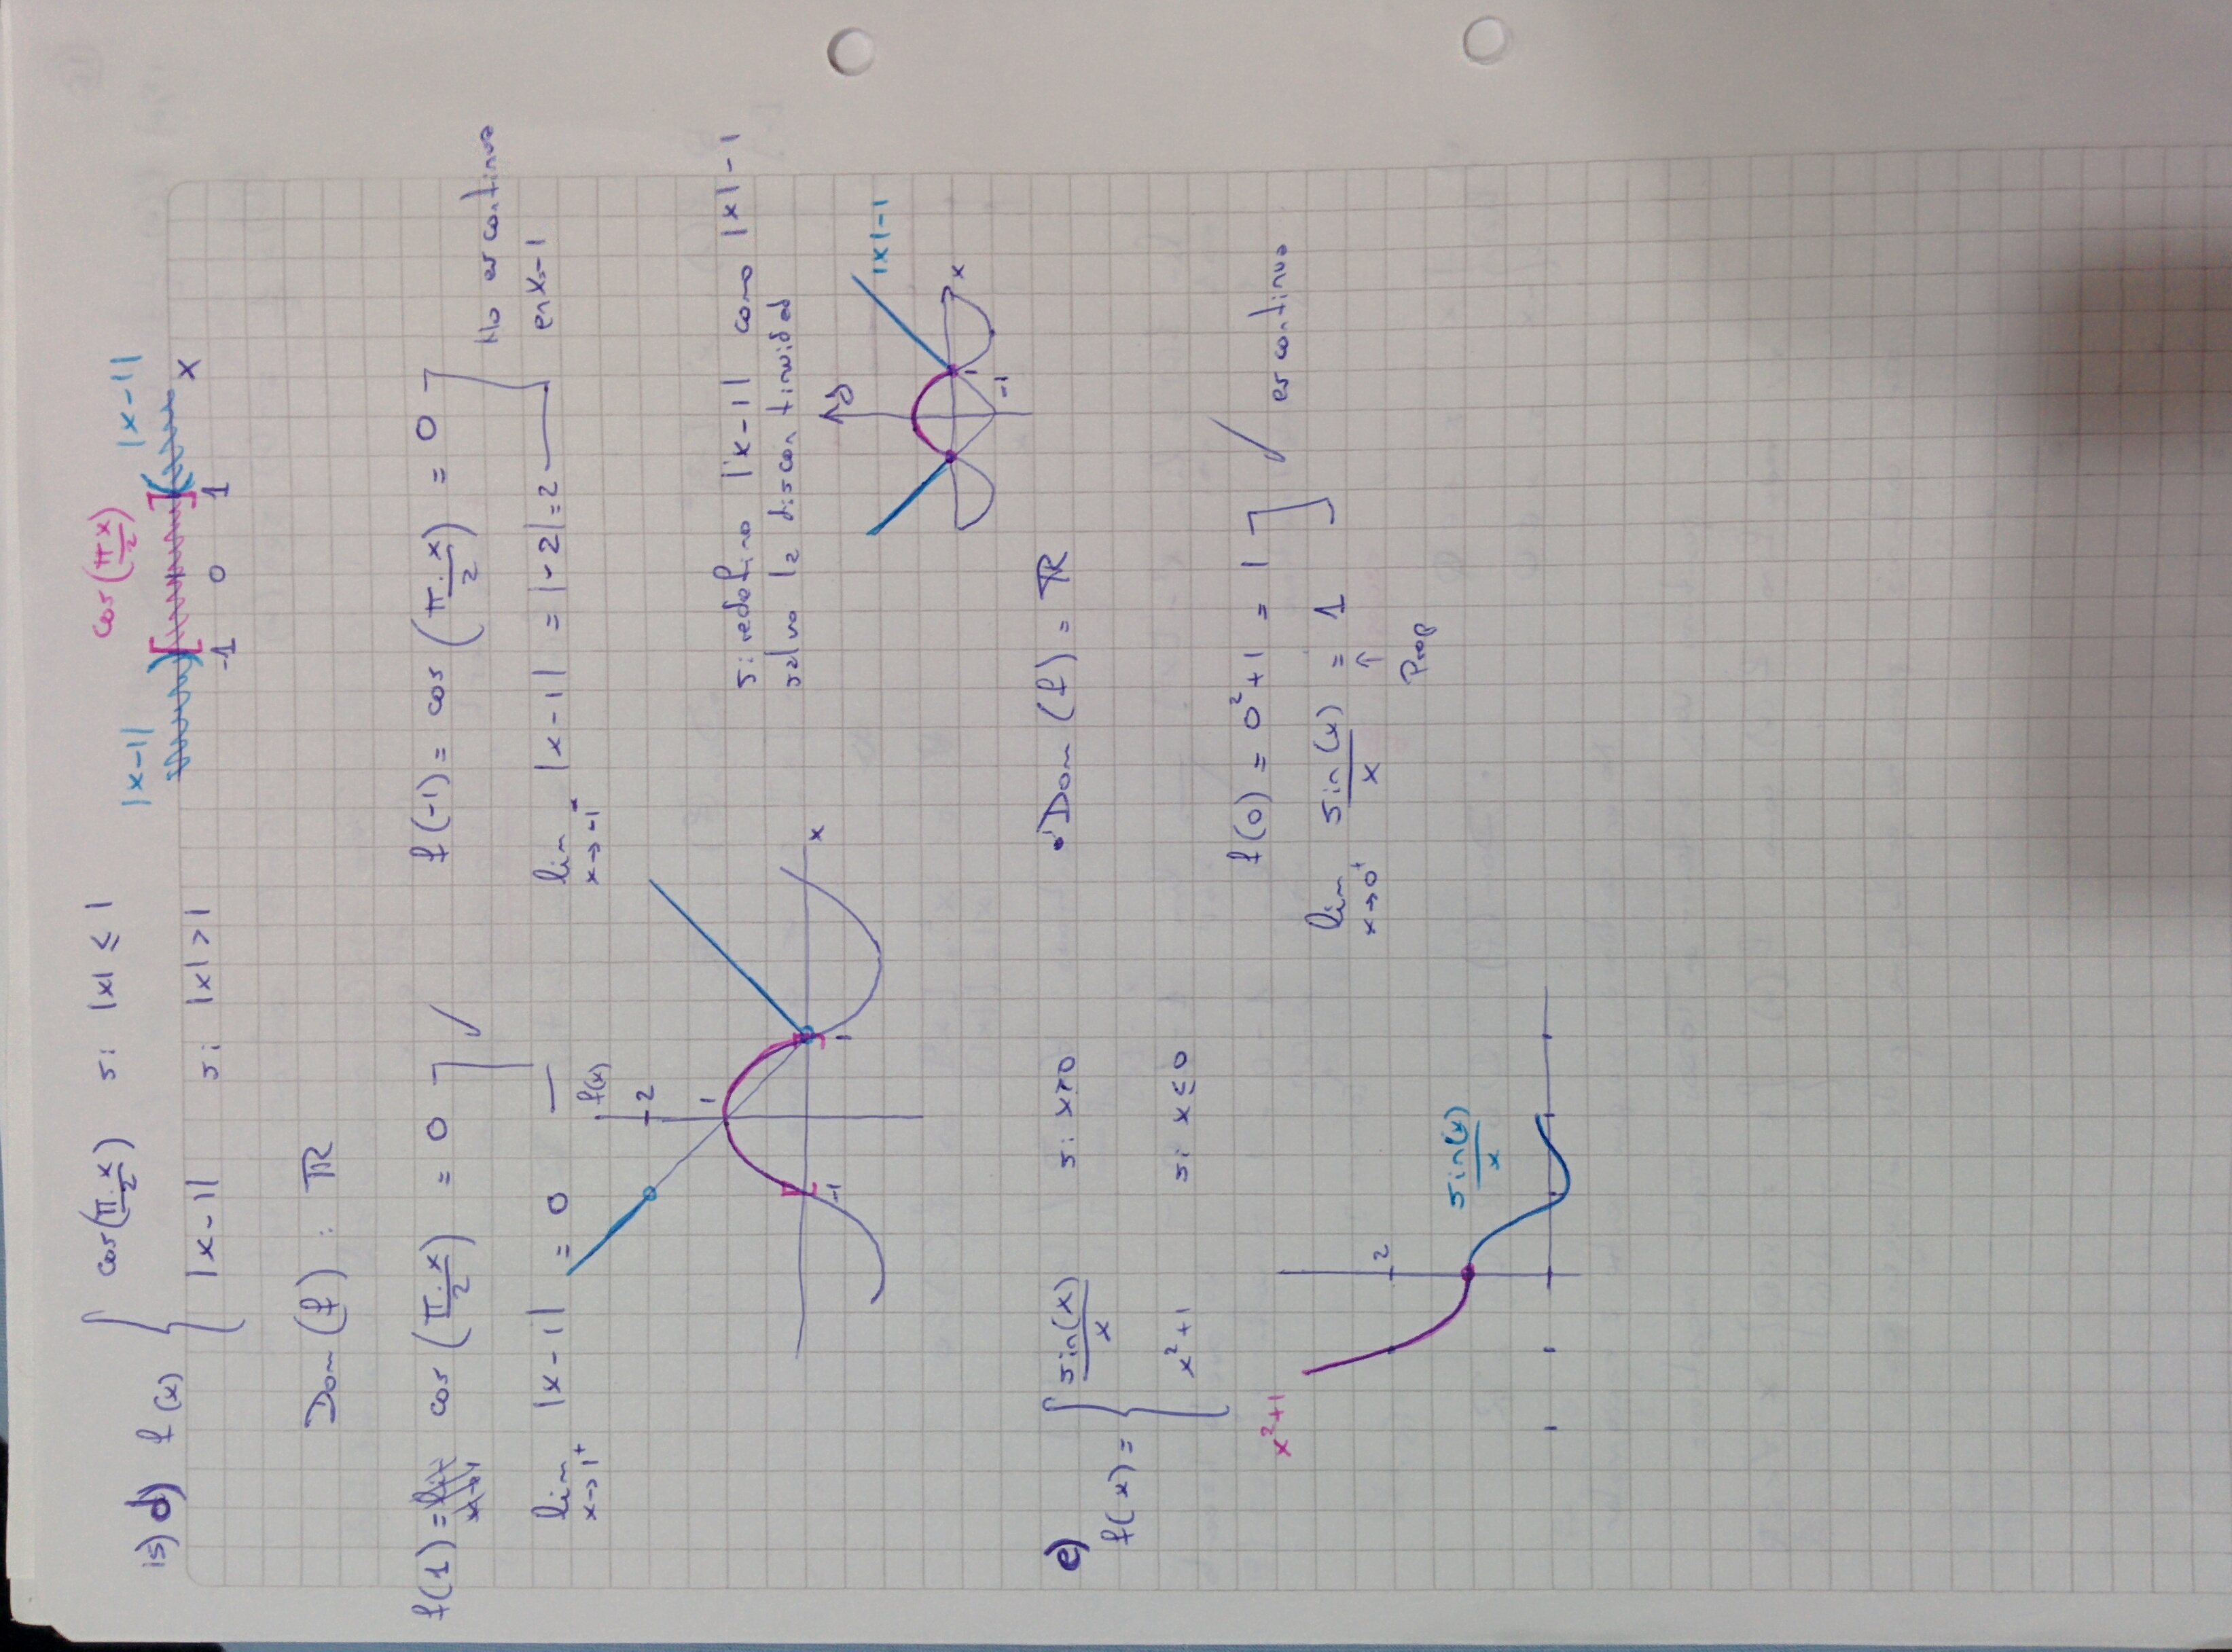 15) d) f(x) { cos(π.x/2) si |x| ≤ 1
|x-1| si |x| > 1
|x-1| cos(πx/2) |x-1|
-1 0 1 x
Dom (f) : ℝ
f(1) = cos (π.x/2) = 0 ✓
lim x→1⁺ |x-1| = 0
f(-1) = cos (π.x/2) = 0
lim x→-1⁻ |x-1| = |-2| = 2
No es continua
en x=-1
f(x)
2
1
-1 1 x
si redefino |x-1| como |x|-1
salvo la discontinuidad
y
|x|-1
1 x
-1
e) f(x) = { sin(x)/x si x>0
x²+1 si x≤0
• Dom (f) = ℝ
f(0) = 0²+1 = 1
lim x→0⁺ sin(x)/x = 1
↑
Prop
✓ es continua
x²+1
2
sin(x)/x